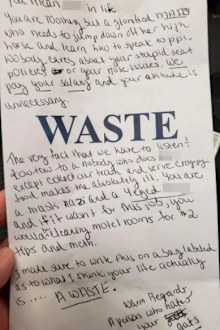 in life.
You are nothing but a glorified MAID
who needs to jump down off her high
horse and learn how to speak to ppl.
Nobody cares about your stupid seat
policies or your nose issues. We
pay your salary and your attitude is
unnecessary.
WASTE
The very fact that we have to listen
to you
except collect our trash and serve crappy
food makes me absolutely ill. You are
a mask nazi and a
and if it wasn't for this job, you
would cleaning motel rooms for $2
tips and meth.
I made sure to write this on a bag labeled
as to what I think your life actually
is .... A WASTE.
Warm Regards
A person who hates
your